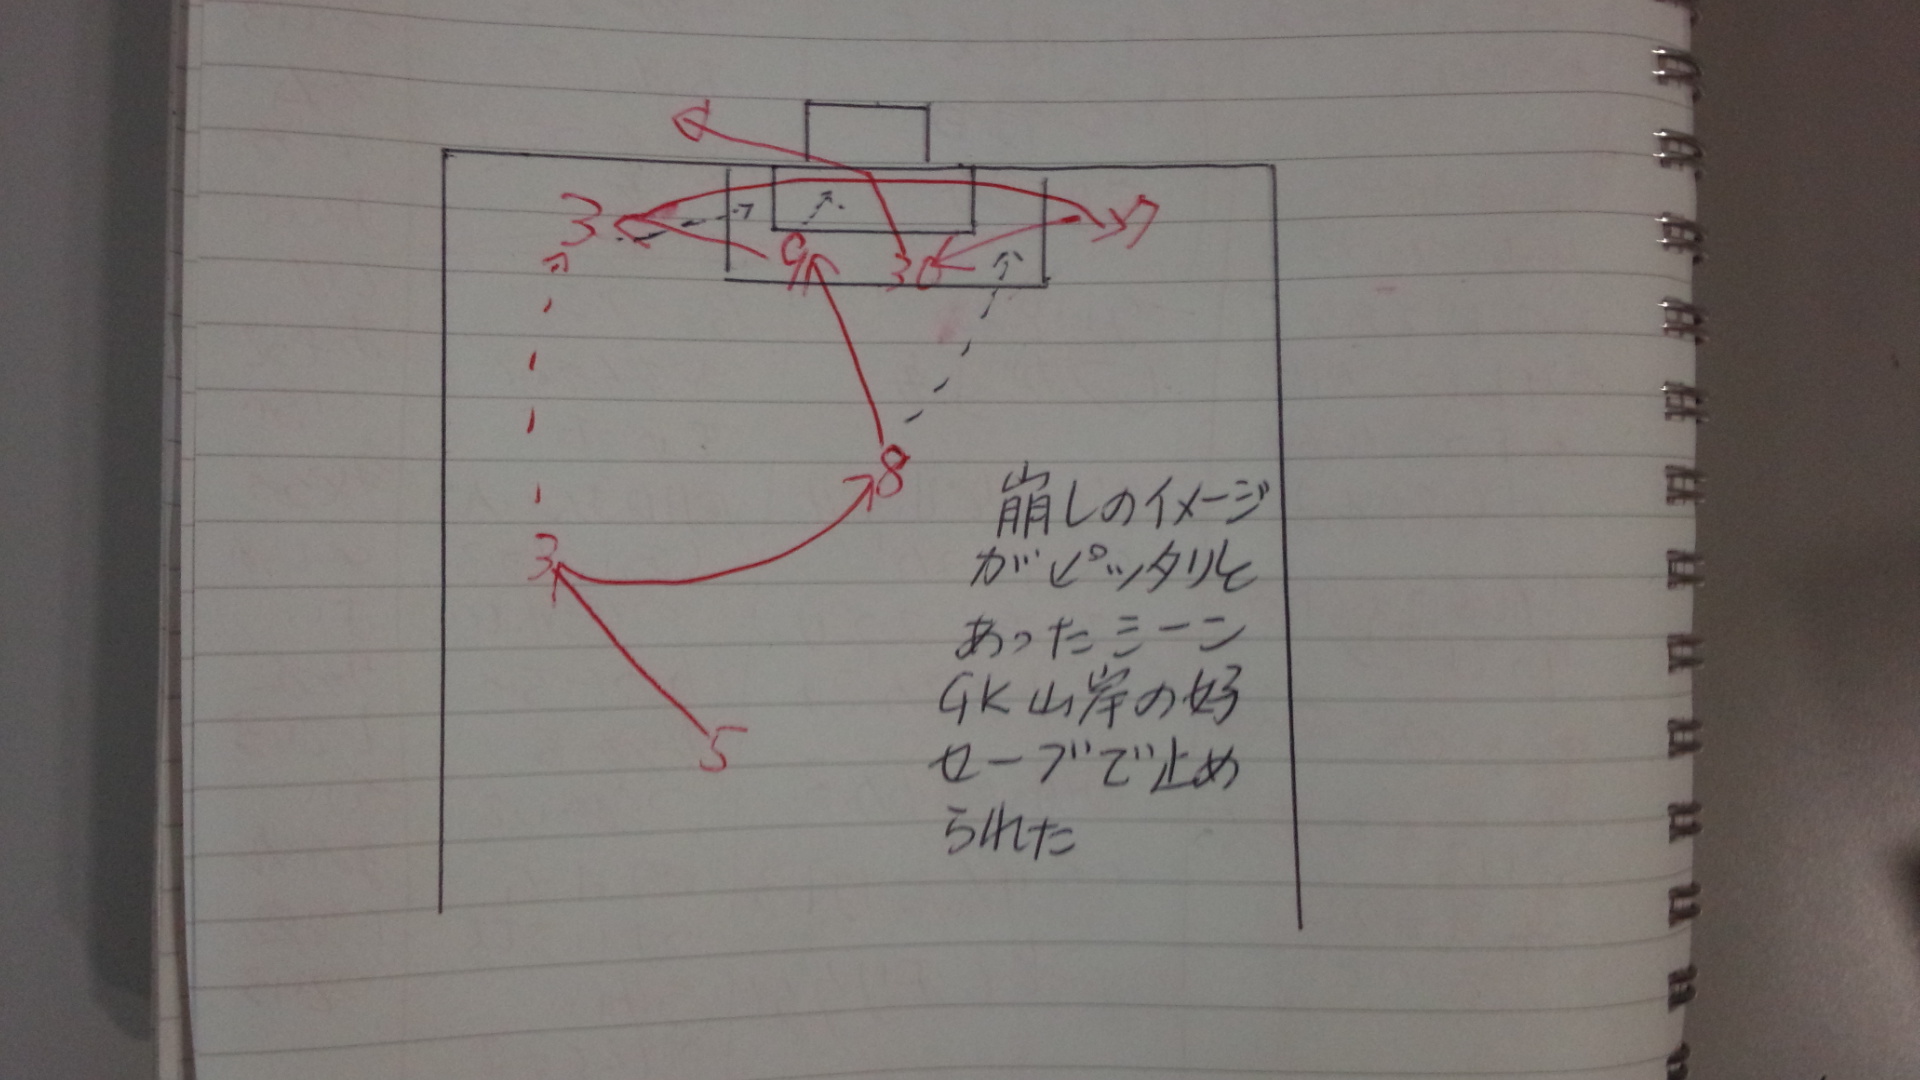 3
9
30
37
8
3
5
崩しのイメージ
がピッタリと
あったシーン
GK山岸の好
セーブで止め
られた